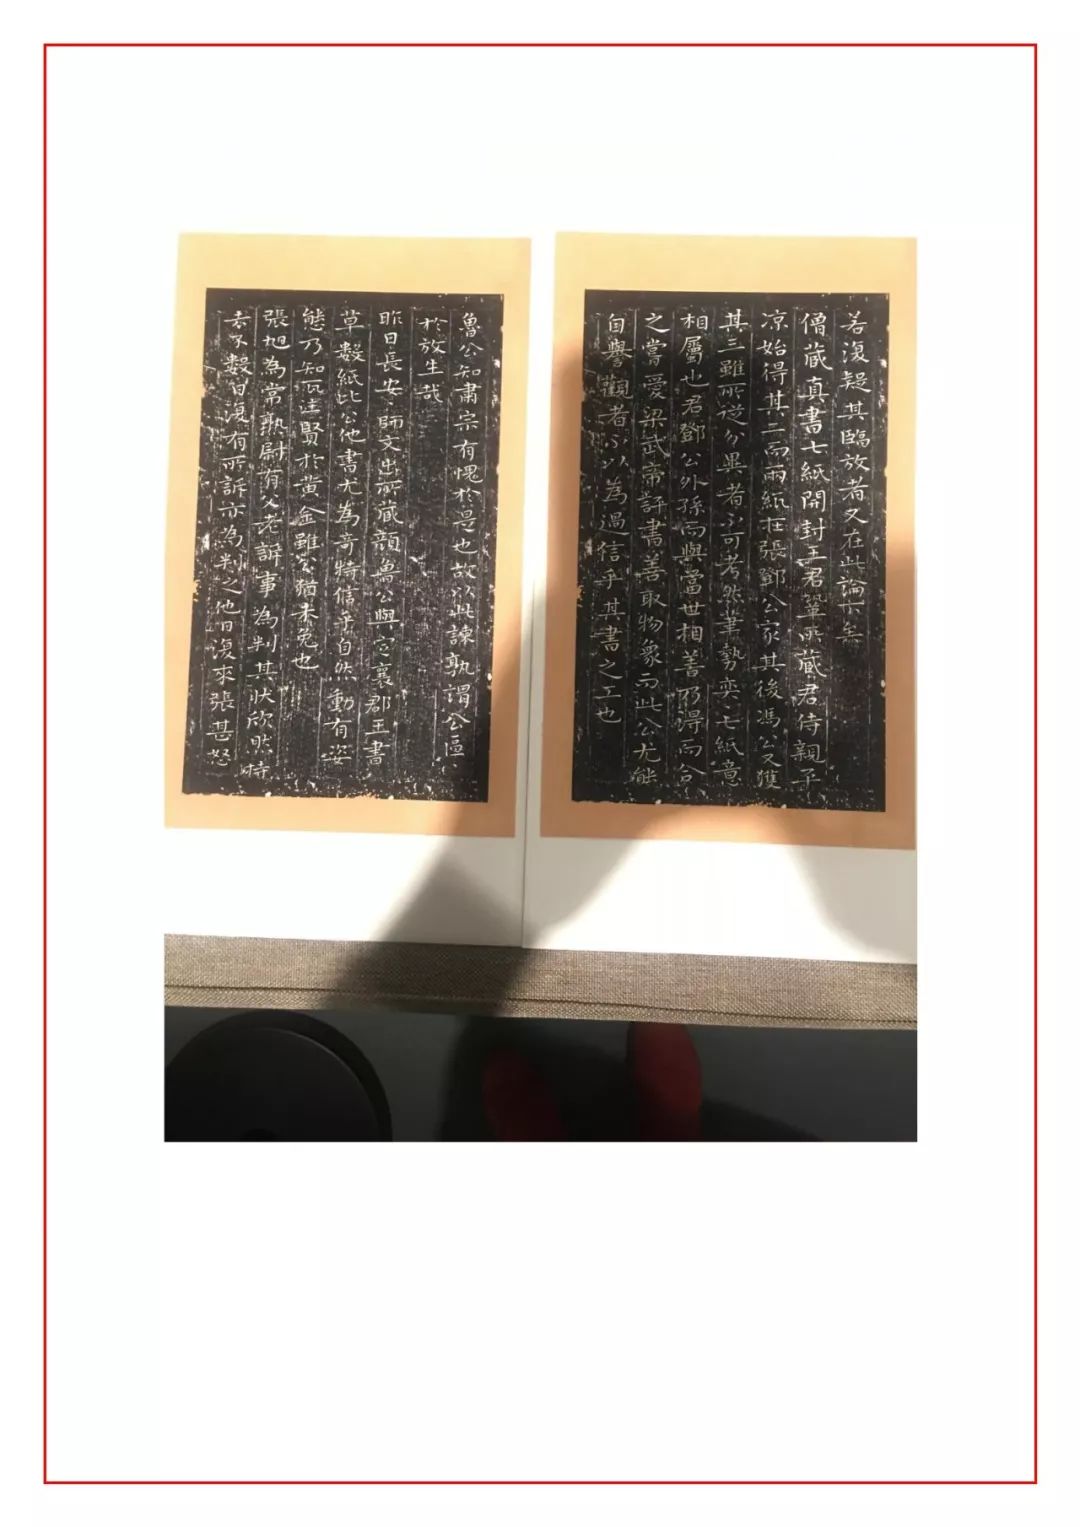 若復疑其臨放者又在此論下矣
僧藏真書七紙開封王君鞏所藏君侍親平
涼始得其二而兩紙在張鄧公家其後馮公又獲
其三雖所從分異者不可考然筆勢奕々七紙意
相屬也君鄧公外孫而與當世相善乃得而合
之嘗愛梁武帝評書善取物象而此公尤能
自譽觀者不以為過信乎其書之工也
魯公知肅宗有愧於是也故以此諫孰謂公區
於放生哉
昨日長安々師文出所藏顏魯公與定襄郡王書
草數紙比公他書尤為奇特信手自然動有姿
態乃知瓦注賢於黃金雖公猶未免也
張旭為常熟尉有父老訴事為判其狀欣然持
去不數日復有所訴亦為判之他日復來張甚怒